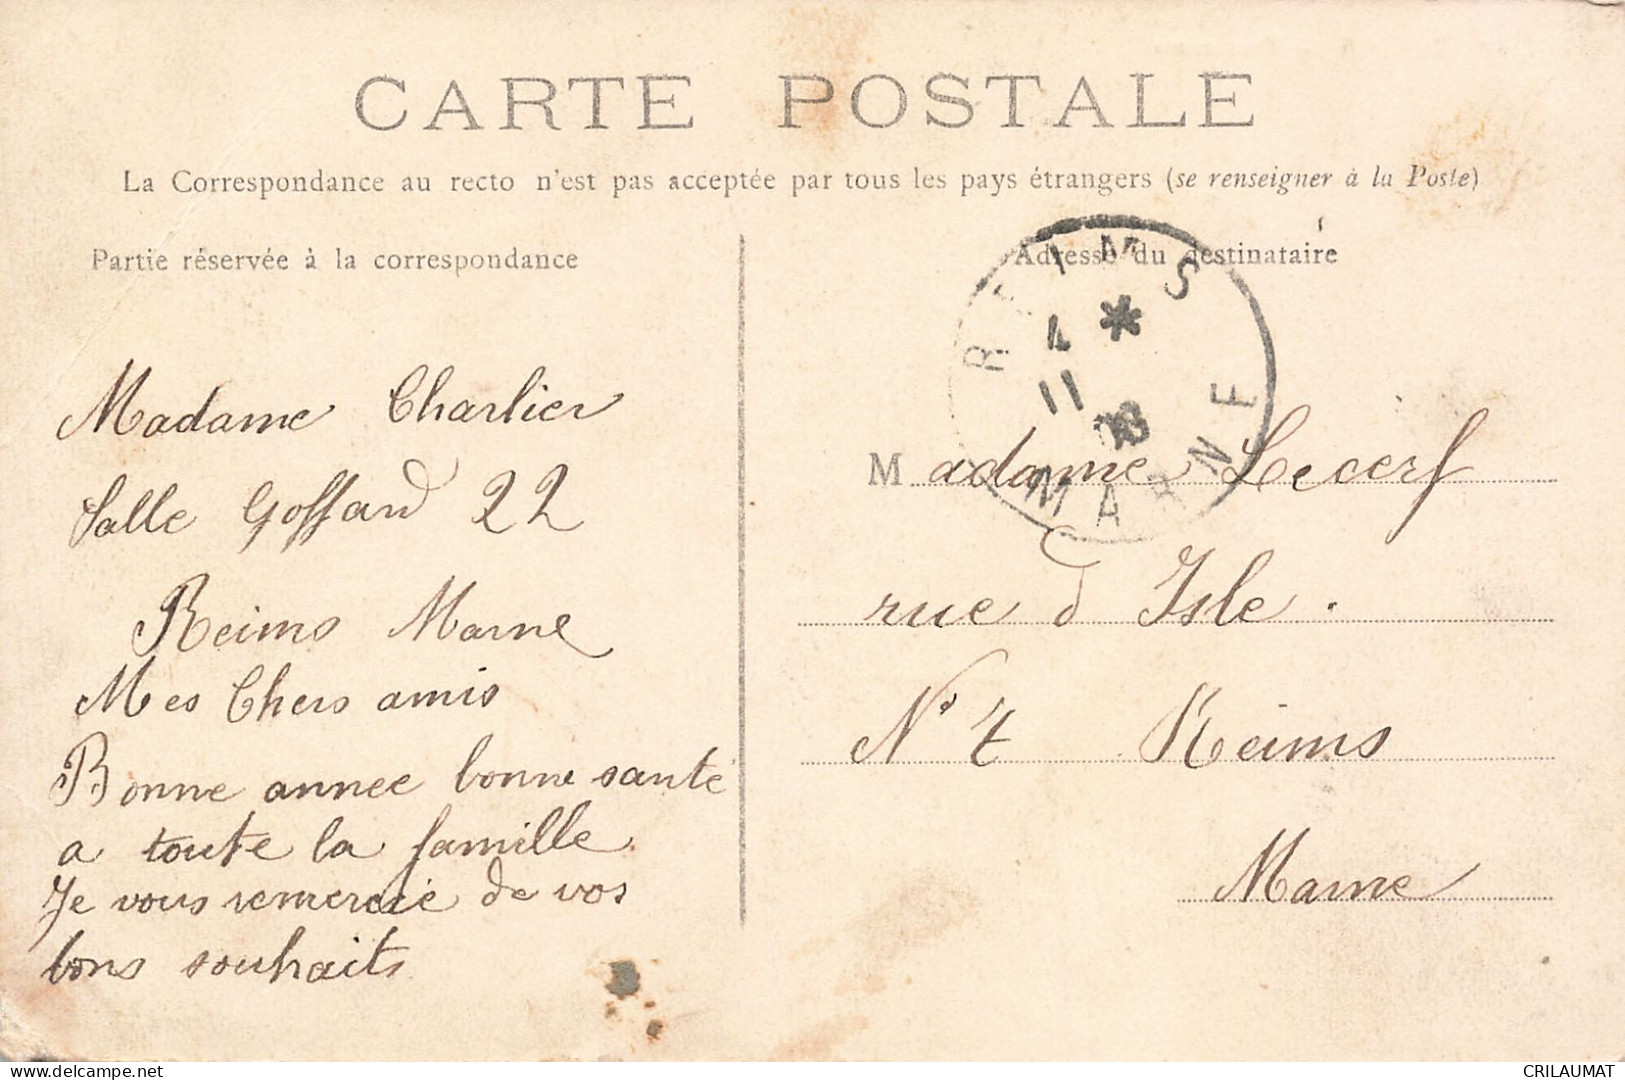 CARTE POSTALE
La Correspondance au recto n'est pas acceptée par tous les pays étrangers (se renseigner à la Poste)
Partie réservée à la correspondance
Madame Charlier
Salle Goffard 22
Reims Marne
Mes Chers amis
Bonne annee bonne santé
a toute la famille
Je vous remercie de vos
bons souhaits
Adresse du destinataire
REIMS
4 *
11
MARNE
Madame Lecerf
rue d Isle.
N° 7 Reims
Marne
www.delcampe.net
CRILAUMAT